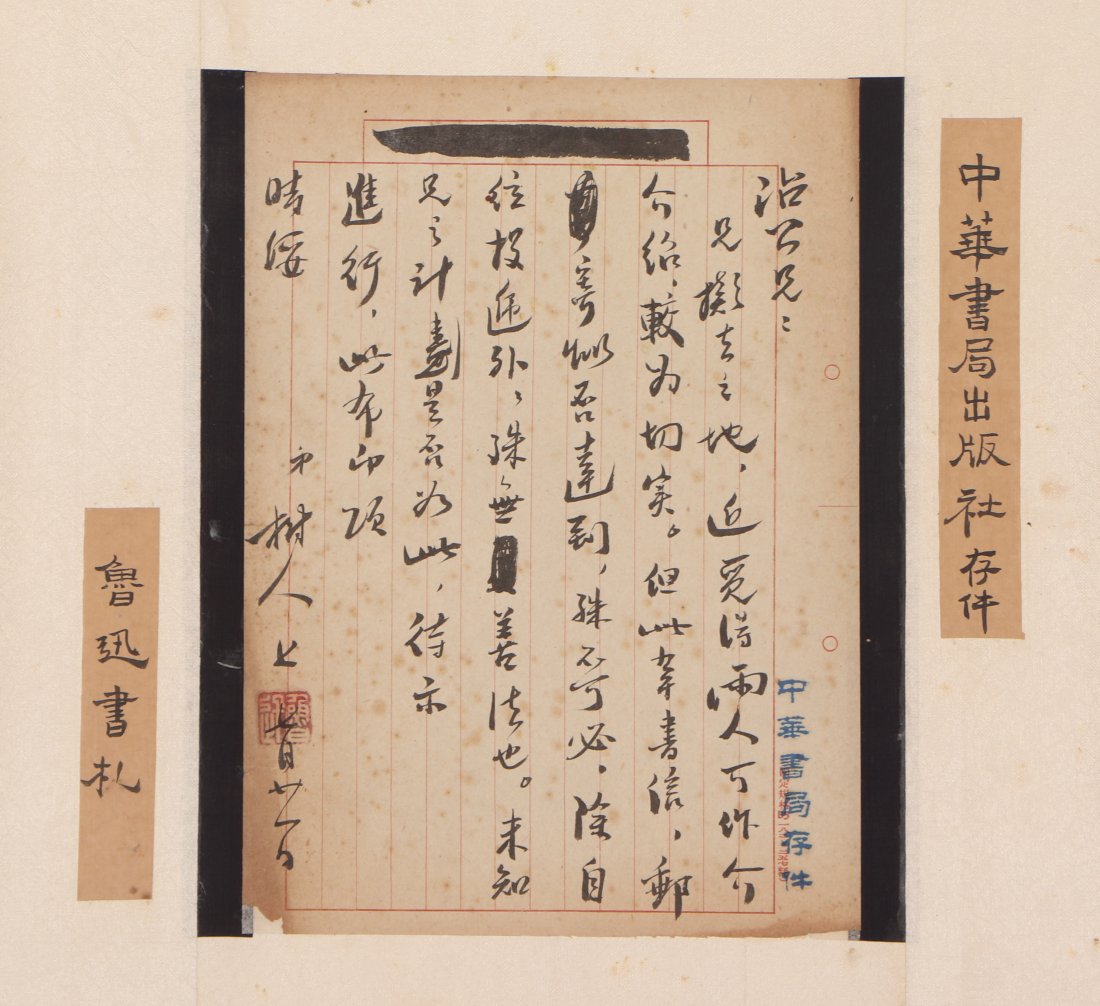 中華書局出版社存件
公兄：
兄擬去之地，近覓得兩人可作介
介紹，較為切实。但此等書信，郵
寄似否達到，殊不可必，除自
往投遞外，殊無善法也。未知
兄之計劃是否如此，待示
進行，此布即頌
時綏
弟樹人上
七月廿日
中華書局存件
魯迅書札